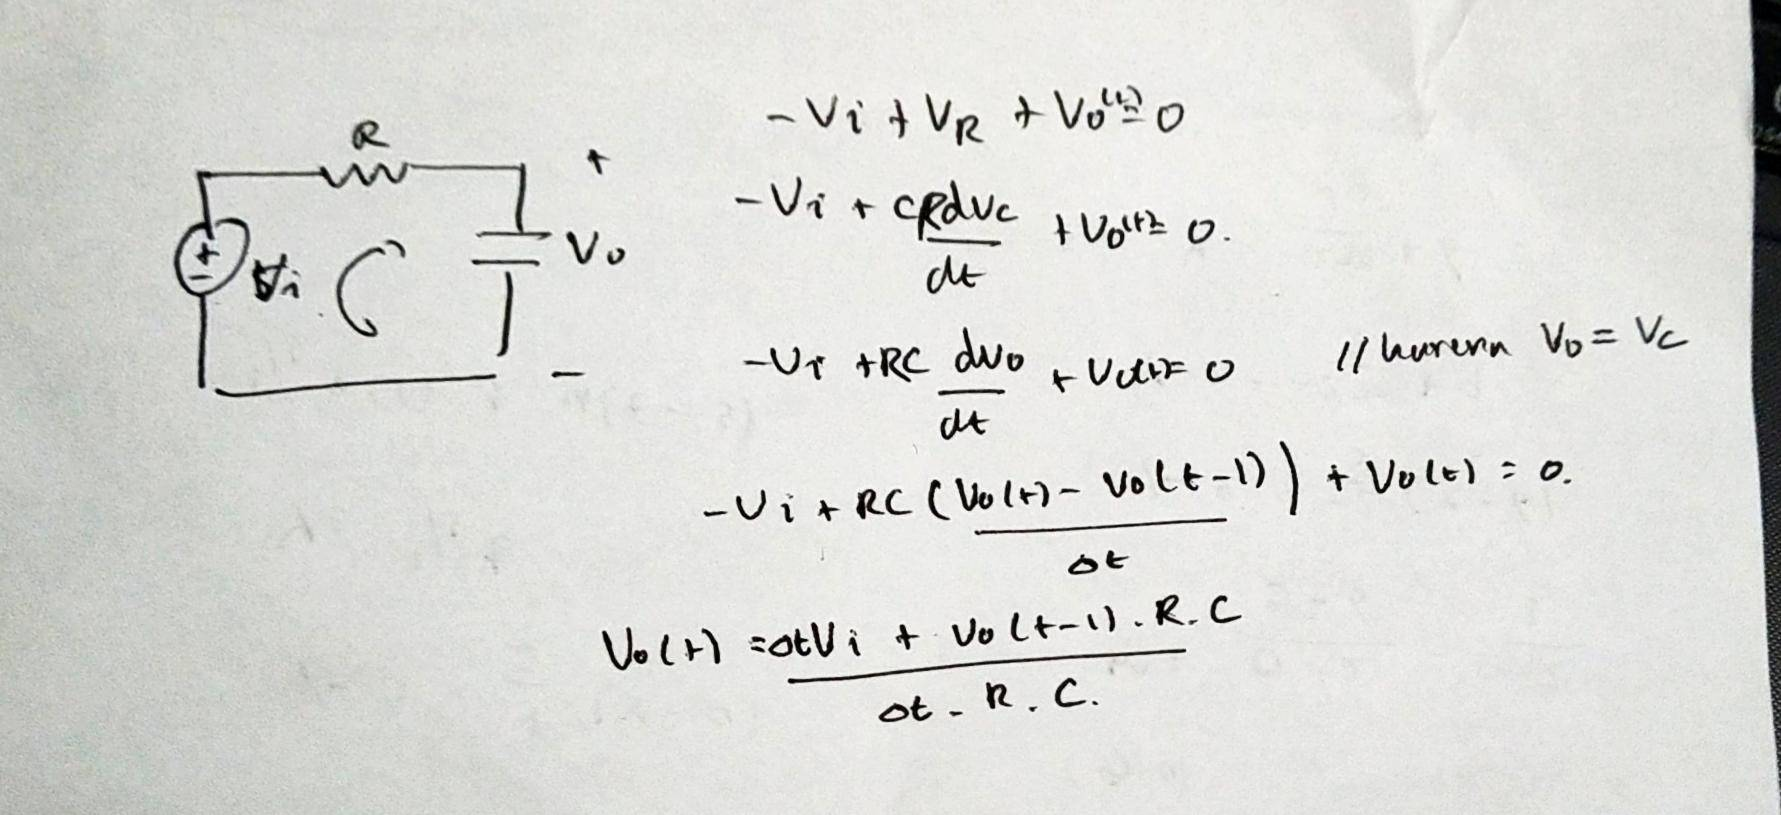 R
+
+
-
Vi
Vo
-
-Vi + VR + Vo(t) = 0
-Vi + CRdvc/dt + Vo(t) = 0.
-Vi + RC dvo/dt + Vo(t) = 0 // karena Vo = Vc
-Vi + RC (Vo(t) - Vo(t-1)/Δt) + Vo(t) = 0.
Vo(t) = ΔtVi + Vo(t-1) . R. C/Δt - R . C.